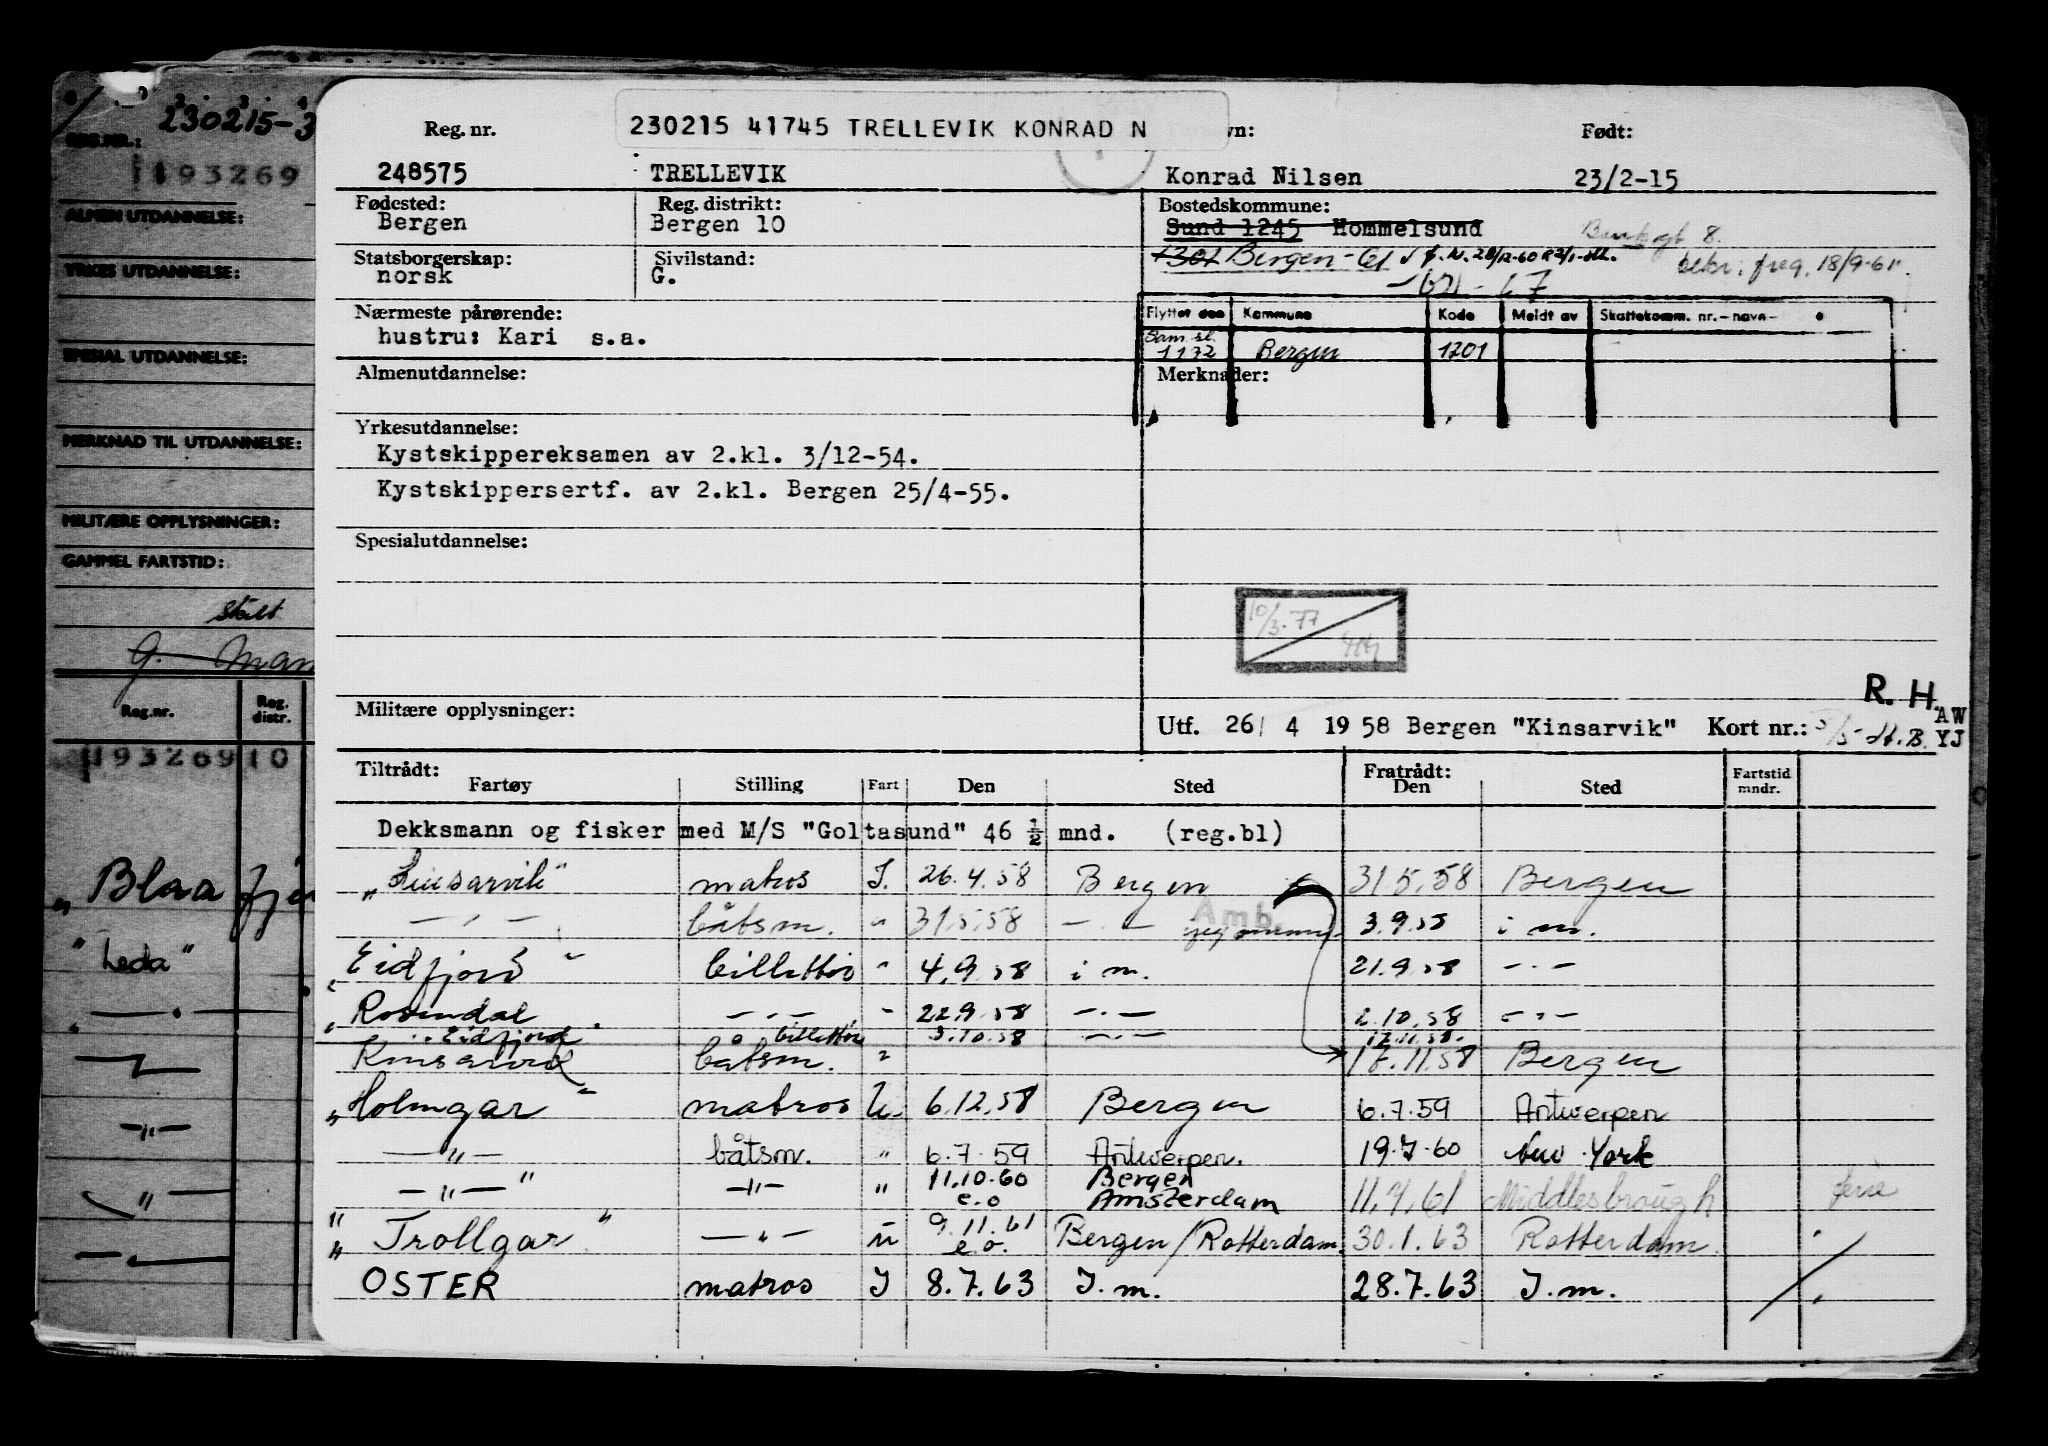 230215-3
REG.NR.:
193269
ALMEN UTDANNELSE:
YRKES UTDANNELSE:
SPESIAL UTDANNELSE:
MERKNAD TIL UTDANNELSE:
MILITÆRE OPPLYSNINGER:
GAMMEL FARTSTID:
Reg.nr. Reg. distr.
193269 10
"Blaa
"Leda"
230215 41745 TRELLEVIK KONRAD N
Reg. nr. Født:
248575 TRELLEVIK Konrad Nilsen 23/2-15
Fødested: Reg. distrikt: Bostedskommune:
Bergen Bergen 10 Sund 1245 Hommelsund
Statsborgerskap: Sivilstand: 1301 Bergen-61
norsk G. bekr. freg. 18/9-61
Nærmeste pårørende: Flyttet den Kommune Kode Meldt av Skattekomm. nr.-navn-
hustru: Kari s.a. 1132 Bergen 1201
Almenutdannelse: Merknader:
Yrkesutdannelse:
Kystskippereksamen av 2.kl. 3/12-54.
Kystskippersertf. av 2.kl. Bergen 25/4-55.
Spesialutdannelse:
10/3-77
R. H.
Militære opplysninger: Utf. 26/ 4 1958 Bergen "Kinsarvik" Kort nr.: AW
YJ
Tiltrådt: Fratrådt:
Fartøy Stilling Fart Den Sted Den Sted Fartstid mndr.
Dekksmann og fisker med M/S "Goltasund" 46 ½ mnd. (reg.bl)
"Kinsarvik" matros I. 26.4.58 Bergen 31.5.58 Bergen
—"— båtsm. " 31.5.58 —"— Amb. 3.9.58 i m.
"Eidfjord" billettør " 4.9.58 i m. 21.9.58 —"—
"Rosendal" —"— " 22.9.58 —"— 2.10.58 —"—
"Eidfjord billettør 3.10.58 —"— 17.11.58.
Kinsarvik båtsm. " 17.11.58 Bergen
"Holmgar" matros U. 6.12.58 Bergen 6.7.59 Antwerpen
—"— båtsm. " 6.7.59 Antwerpen. 19.7.60 New York
—"— —"— " 11.10.60 e.o Bergen Amsterdam 11.7.61 Middlesbrough ferie
"Trollgar" —"— u 9.11.61 e.o. Bergen/Rotterdam. 30.1.63 Rotterdam
OSTER matros I 8.7.63 I.m. 28.7.63 I.m.